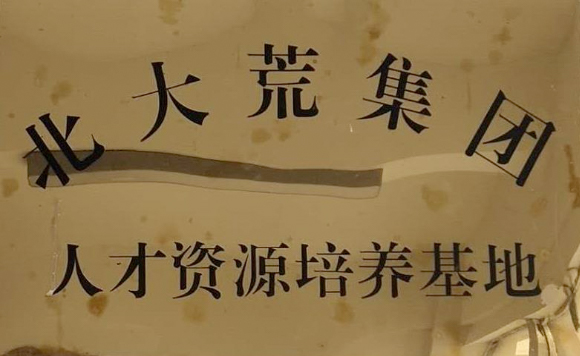 北大荒集团
人才资源培养基地